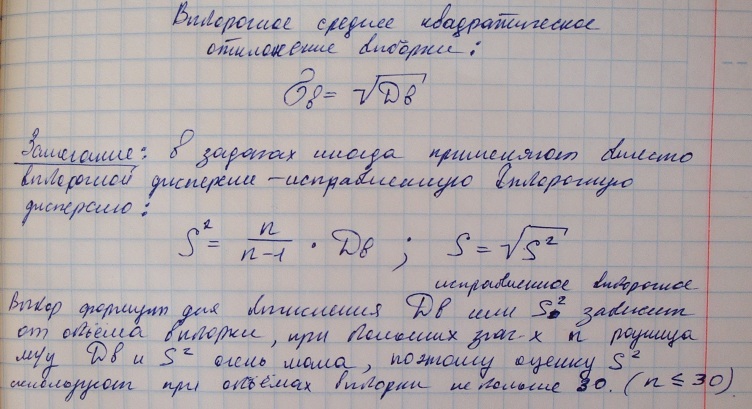 Выборочное среднее квадратическое
отклонение выборки:
σв = √Дв
Замечание: в задачах иногда применяют вместо
выборочной дисперсии – исправленную выборочную
дисперсию:
S² = n/(n-1) · Дв ; S = √S²
исправленное выборочное
Выбор формулы для вычисления Дв или S² зависит
от объёма выборки, при больших знач-х n разница
м/у Дв и S² очень мала, поэтому оценку S²
используют при объёмах выборки не больше 30. (n ≤ 30)